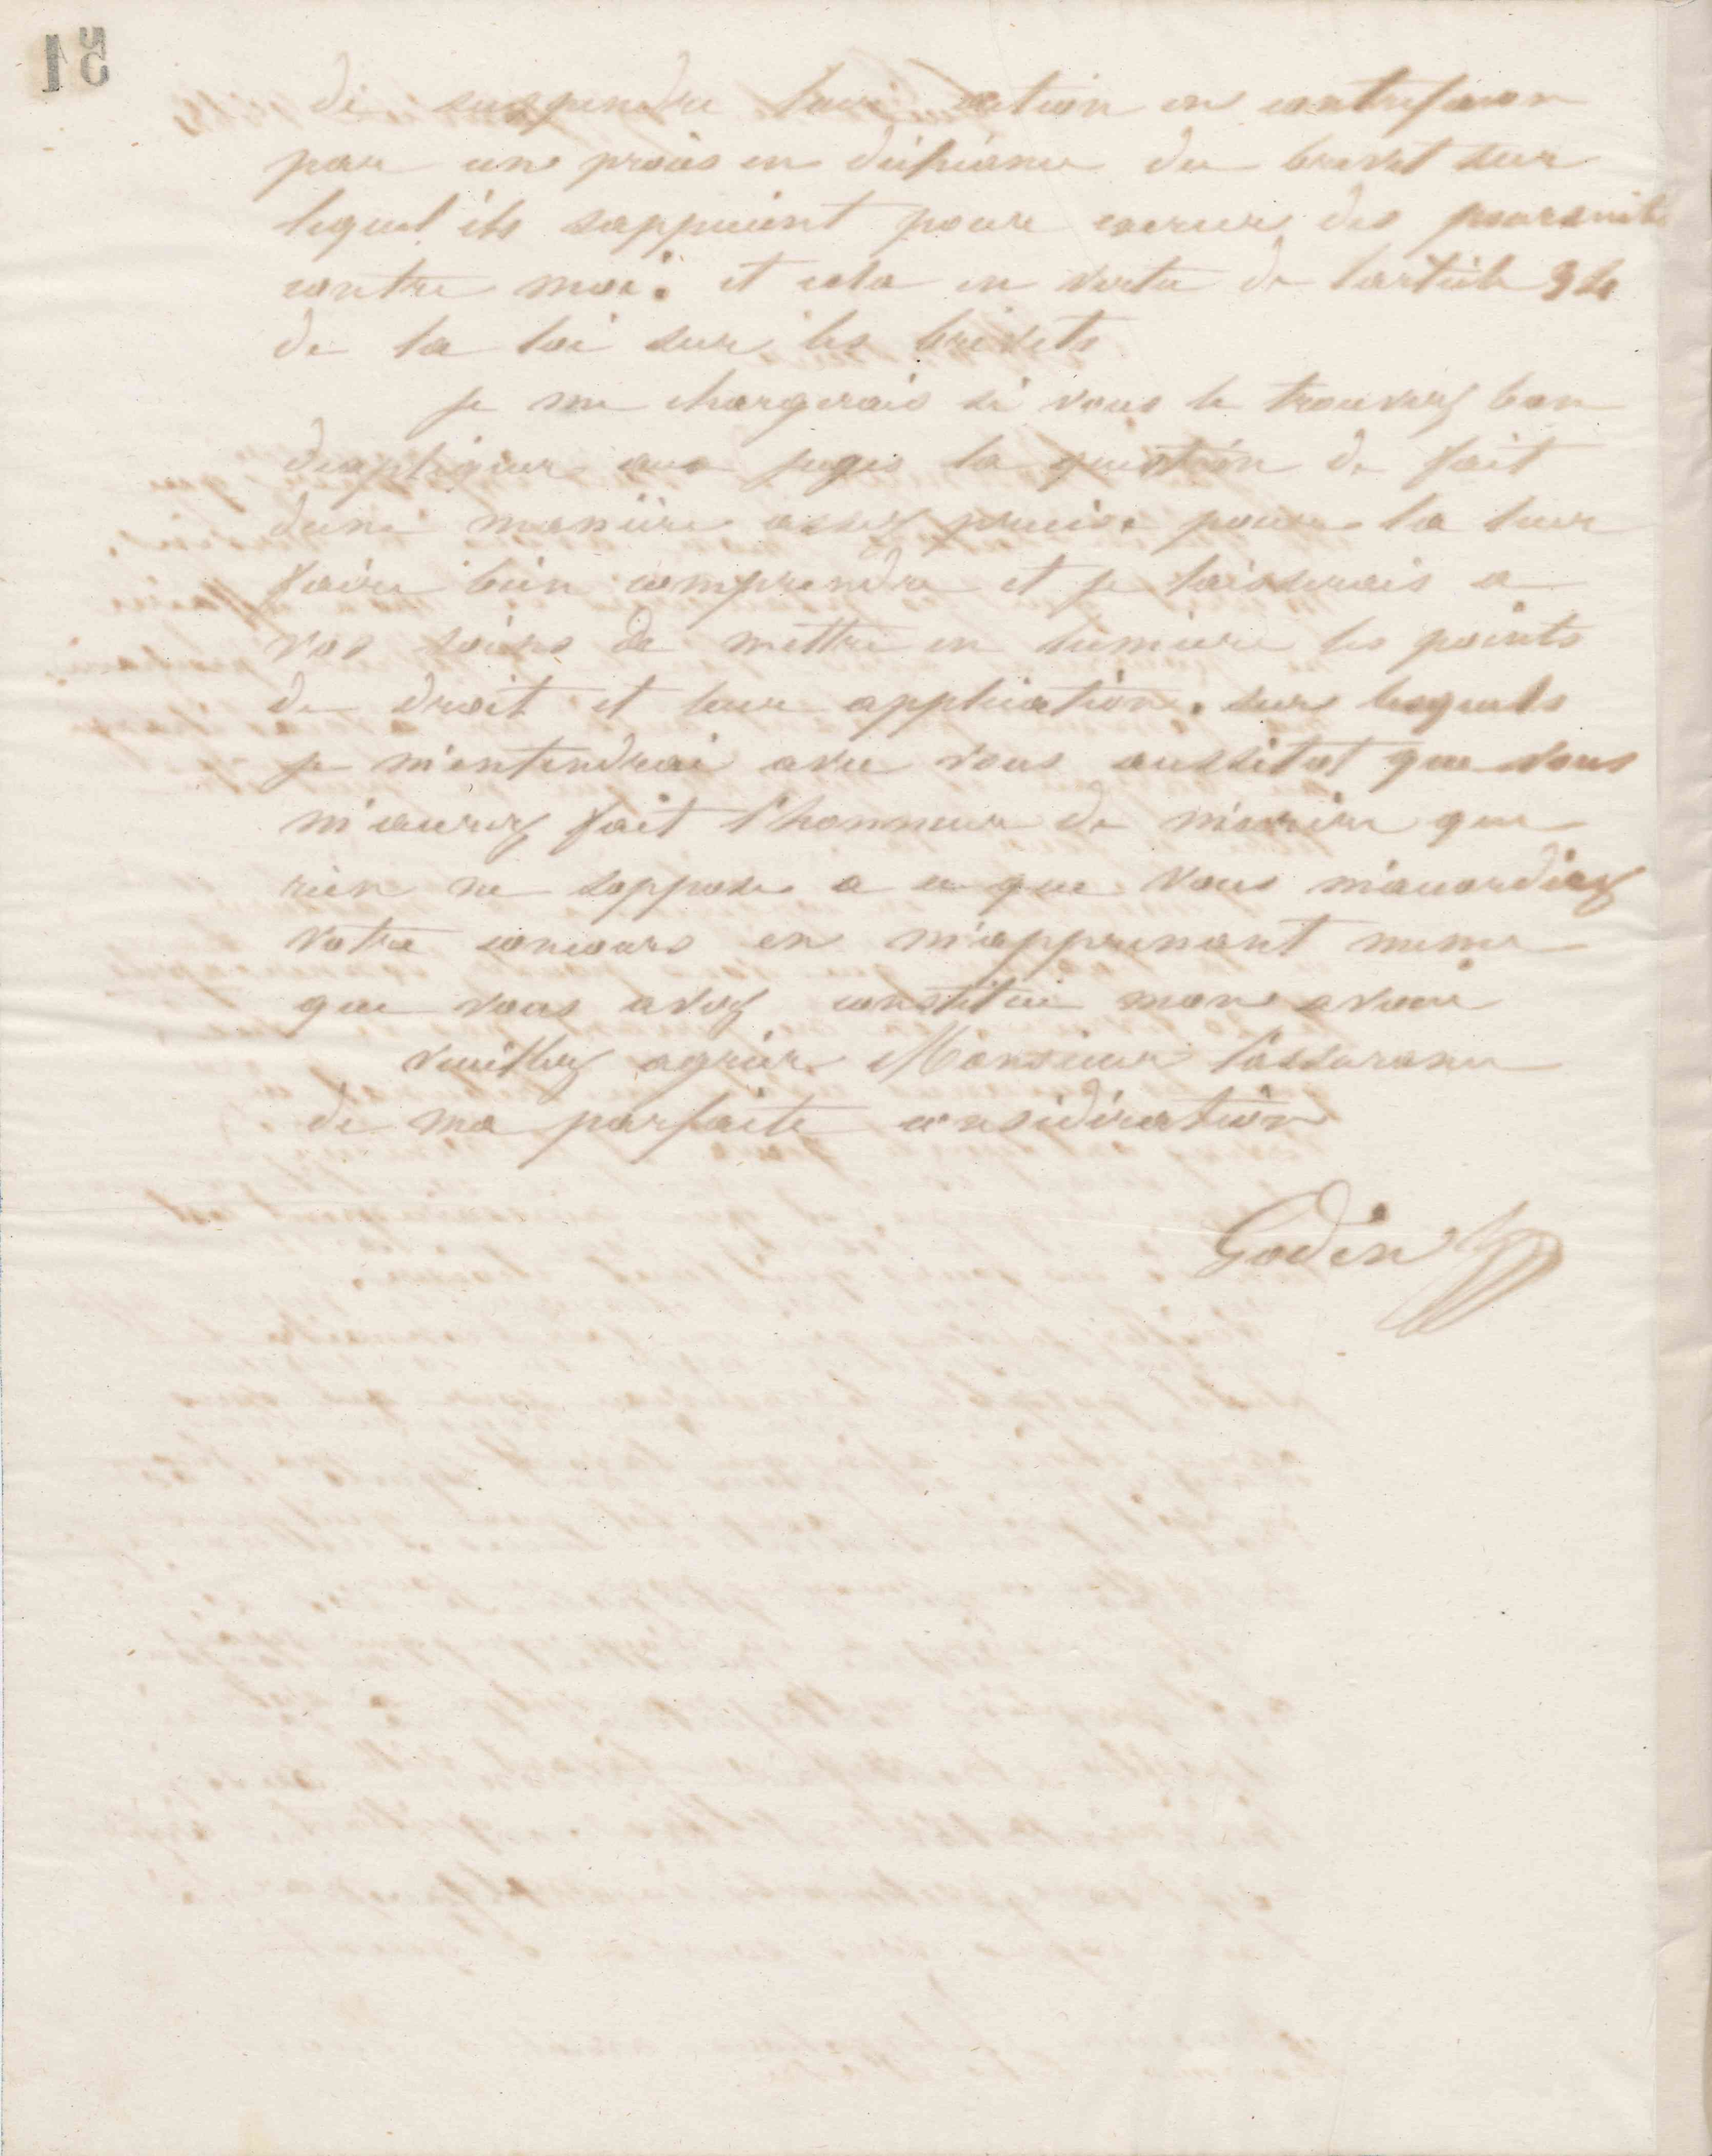 51
de suspendre leur action en contrefacon
par un procès en déchéance du brevet sur
lequel ils sappuient pour exercer des poursuites
contre moi. et cela en vertu de larticle 34
de la loi sur les brevets
je me chargerais si vous le trouvez bon
dexpliquer aux juges la question de fait
dune manière assez precise pour la leur
faire bien comprendre et je laisserais a
vos soins de mettre en lumiere les points
de droit et leur application. sur lesquels
je m'entendrai avec vous aussitot que vous
m'aurez fait l'honneur de m'ecrire que
rien ne soppose a ce que vous m'accordiez
votre concours en m'apprenant meme
que vous avez constitué mon avoué
veuillez agréer Monsieur l'assurance
de ma parfaite considération
Godin